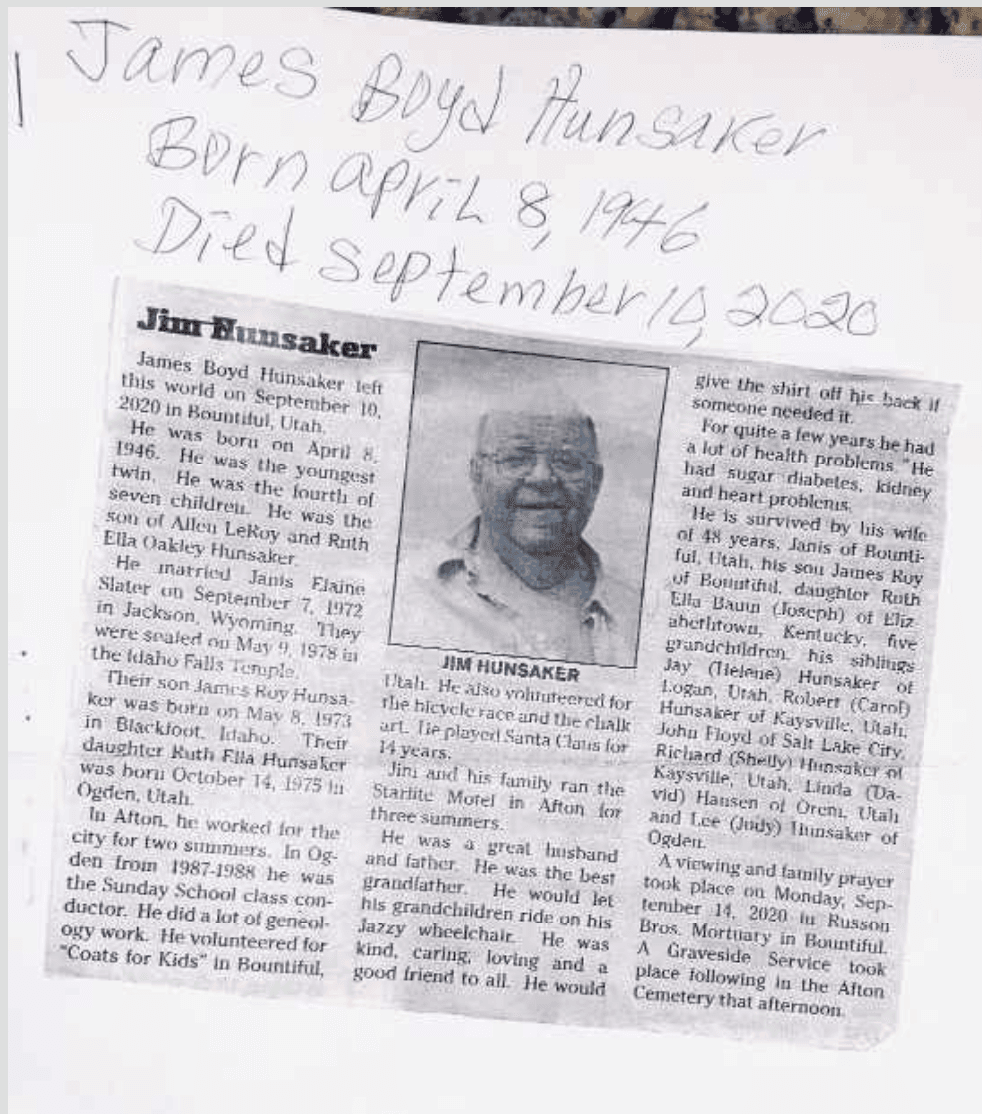 James Boyd Hunsaker
Born april 8, 1946
Died september 10, 2020
Jim Hunsaker
James Boyd Hunsaker left
this world on September 10,
2020 in Bountiful, Utah.
He was born on April 8,
1946. He was the youngest
twin. He was the fourth of
seven children. He was the
son of Allen LeRoy and Ruth
Ella Oakley Hunsaker.
He married Janis Elaine
Slater on September 7, 1972
in Jackson, Wyoming. They
were sealed on May 9, 1978 in
the Idaho Falls Temple.
Their son James Roy Hunsa-
ker was born on May 8, 1973
in Blackfoot, Idaho. Their
daughter Ruth Ella Hunsaker
was born October 14, 1975 in
Ogden, Utah.
In Afton, he worked for the
city for two summers. In Og-
den from 1987-1988 he was
the Sunday School class con-
ductor. He did a lot of geneol-
ogy work. He volunteered for
"Coats for Kids" in Bountiful,
JIM HUNSAKER
Utah. He also volunteered for
the bicycle race and the chalk
art. He played Santa Claus for
14 years.
Jim and his family ran the
Starlite Motel in Afton for
three summers.
He was a great husband
and father. He was the best
grandfather. He would let
his grandchildren ride on his
Jazzy wheelchair. He was
kind, caring, loving and a
good friend to all. He would
give the shirt off his back if
someone needed it.
For quite a few years he had
a lot of health problems. He
had sugar diabetes, kidney
and heart problems.
He is survived by his wife
of 48 years, Janis of Bounti-
ful, Utah, his son James Roy
of Bountiful, daughter Ruth
Ella Baum (Joseph) of Eliz
abethtown, Kentucky, five
grandchildren, his siblings
Jay (Helene) Hunsaker of
Logan, Utah, Robert (Carol)
Hunsaker of Kaysville, Utah,
John Floyd of Salt Lake City,
Richard (Shelly) Hunsaker of
Kaysville, Utah, Linda (Da-
vid) Hansen of Orem, Utah
and Lee (Judy) Hunsaker of
Ogden.
A viewing and family prayer
took place on Monday, Sep-
tember 14, 2020 in Russon
Bros. Mortuary in Bountiful.
A Graveside Service took
place following in the Afton
Cemetery that afternoon.